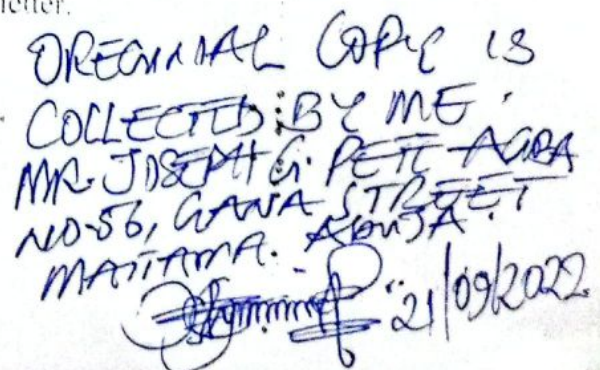 letter.
OREGINAL COPY IS
COLLECTED BY ME.
MR. JOSEPH G. PETE AGBA
NO-56, GANA STREET
MAITAMA. ABUJA.
21/09/2022